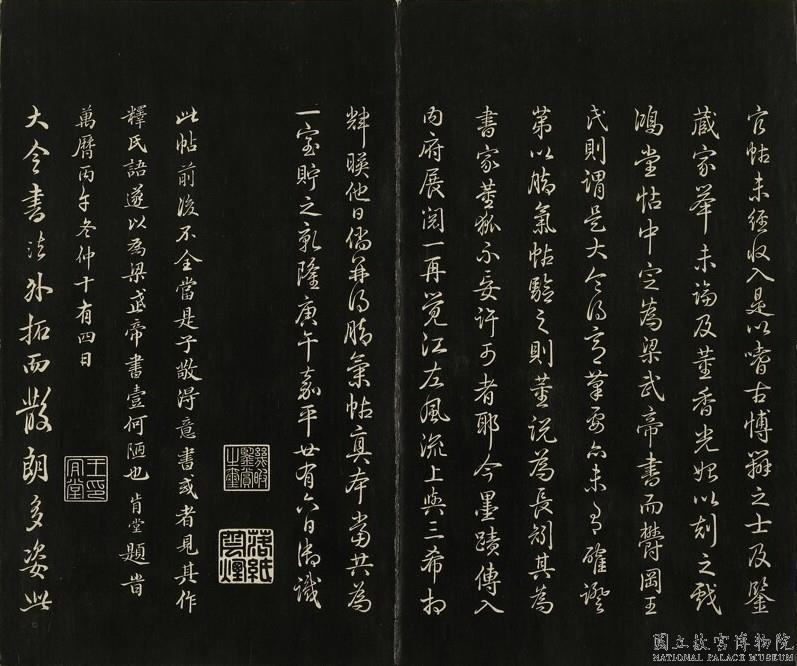 官帖未經收入是以嗜古博辯之士及鑒
藏家舉未論及董香光始以刻之戲
鴻堂帖中定為梁武帝書而鬱岡王
氏則謂是大令得意筆要亦未有確證
第以腦氣帖驗之則董說為長詎其為
書家董狐不妄許可者耶今墨蹟傳入
內府展閱一再覺江左風流上與三希相
輝暎他日倘并得腦氣帖真本當共為
一室貯之乾隆庚午嘉平廿有六日御識
落紙雲煙
此帖前後不全當是子敬得意書或者見其作
釋氏語遂以為梁武帝書壹何陋也肯堂題旹
萬曆丙午冬仲十有四日
大令書法外拓而散朗多姿此
國立故宮博物院
NATIONAL PALACE MUSEUM